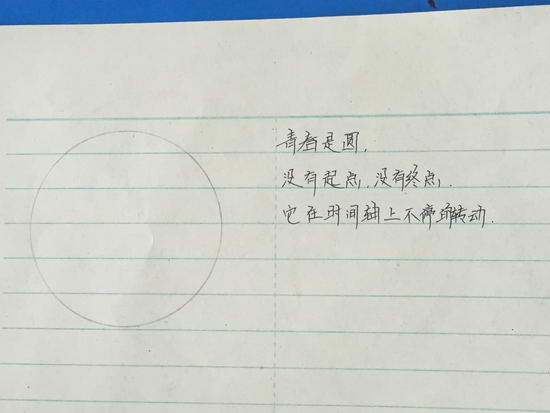 青春是圆,
没有起点,没有终点.
它在时间轴上不停的转动.